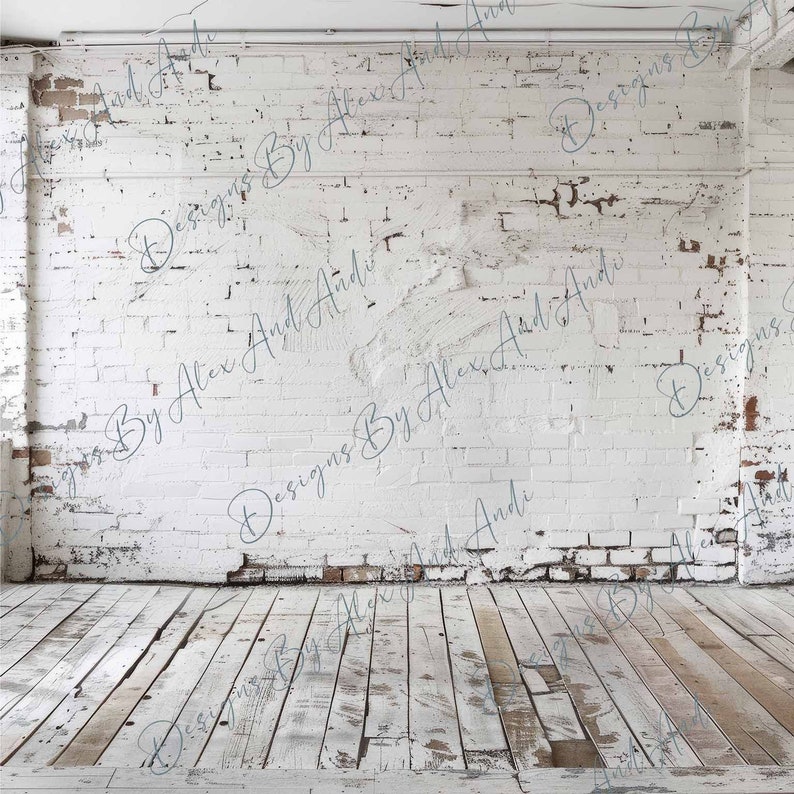 Designs By Alex And Andi
Designs By Alex And Andi
Designs By Alex And Andi
Designs By Alex And Andi
Designs By Alex And Andi
Designs By Alex And Andi
Designs By Alex And Andi
Designs By Alex And Andi